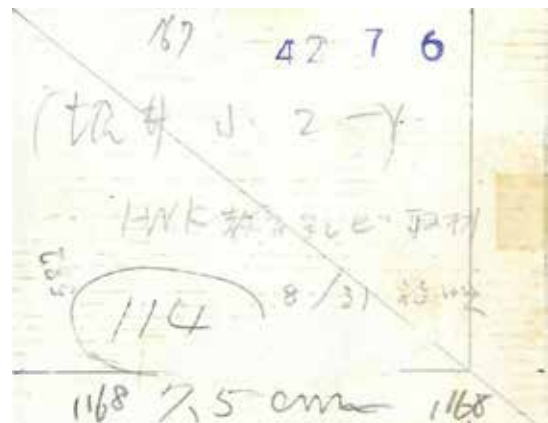 167
42 7 6
(坂井小2-4
HNK教育テレビ取材
8/31
114
1168 7.5cm 1168